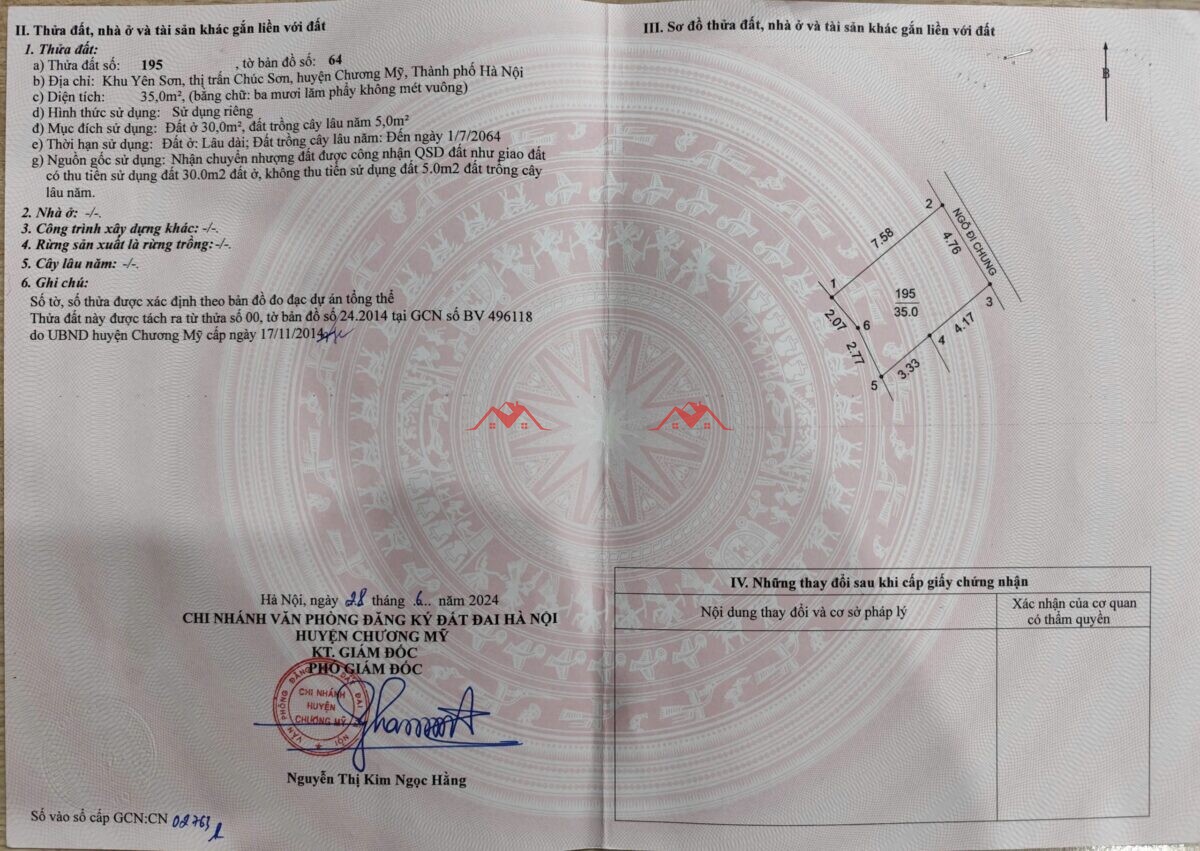 II. Thửa đất, nhà ở và tài sản khác gắn liền với đất
1. Thửa đất:
a) Thửa đất số: 195 , tờ bản đồ số: 64
b) Địa chỉ: Khu Yên Sơn, thị trấn Chúc Sơn, huyện Chương Mỹ, Thành phố Hà Nội
c) Diện tích: 35,0m², (bằng chữ: ba mươi lăm phẩy không mét vuông)
d) Hình thức sử dụng: Sử dụng riêng
đ) Mục đích sử dụng: Đất ở 30,0m², đất trồng cây lâu năm 5,0m²
e) Thời hạn sử dụng: Đất ở: Lâu dài; Đất trồng cây lâu năm: Đến ngày 1/7/2064
g) Nguồn gốc sử dụng: Nhận chuyển nhượng đất được công nhận QSD đất như giao đất
có thu tiền sử dụng đất 30.0m2 đất ở, không thu tiền sử dụng đất 5.0m2 đất trồng cây
lâu năm.
2. Nhà ở: -/-.
3. Công trình xây dựng khác: -/-.
4. Rừng sản xuất là rừng trồng: -/-.
5. Cây lâu năm: -/-.
6. Ghi chú:
Số tờ, số thửa được xác định theo bản đồ đo đạc dự án tổng thể
Thửa đất này được tách ra từ thửa số 00, tờ bản đồ số 24.2014 tại GCN số BV 496118
do UBND huyện Chương Mỹ cấp ngày 17/11/2014
Hà Nội, ngày 28 tháng 6.. năm 2024
CHI NHÁNH VĂN PHÒNG ĐĂNG KÝ ĐẤT ĐAI HÀ NỘI
HUYỆN CHƯƠNG MỸ
KT. GIÁM ĐỐC
PHÓ GIÁM ĐỐC
VĂN PHÒNG ĐĂNG KÝ ĐẤT ĐAI
CHI NHÁNH
HUYỆN
CHƯƠNG MỸ
Nguyễn Thị Kim Ngọc Hằng
Số vào sổ cấp GCN:CN 02763
III. Sơ đồ thửa đất, nhà ở và tài sản khác gắn liền với đất
B
2
NGÕ ĐI CHUNG
7.58
4.76
1
195
35.0
3
2.07
6
4.17
4
2.77
3.33
5
IV. Những thay đổi sau khi cấp giấy chứng nhận
Nội dung thay đổi và cơ sở pháp lý
Xác nhận của cơ quan
có thẩm quyền